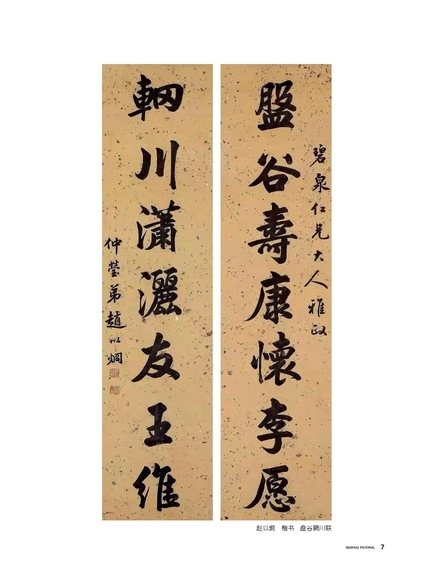 碧泉仁兄大人雅政
盤谷壽康懷李愿
輞川瀟灑友王維
仲瑩弟趙以烱
赵以炯 楷书 盘谷辋川联
GUIZHOU PICTORIAL 7